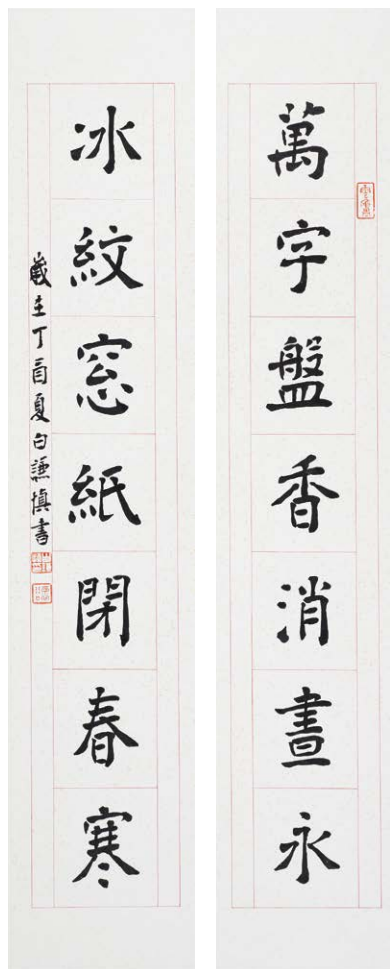 萬字盤香消晝永
冰紋窓紙閉春寒
歲在丁酉夏白謙慎書